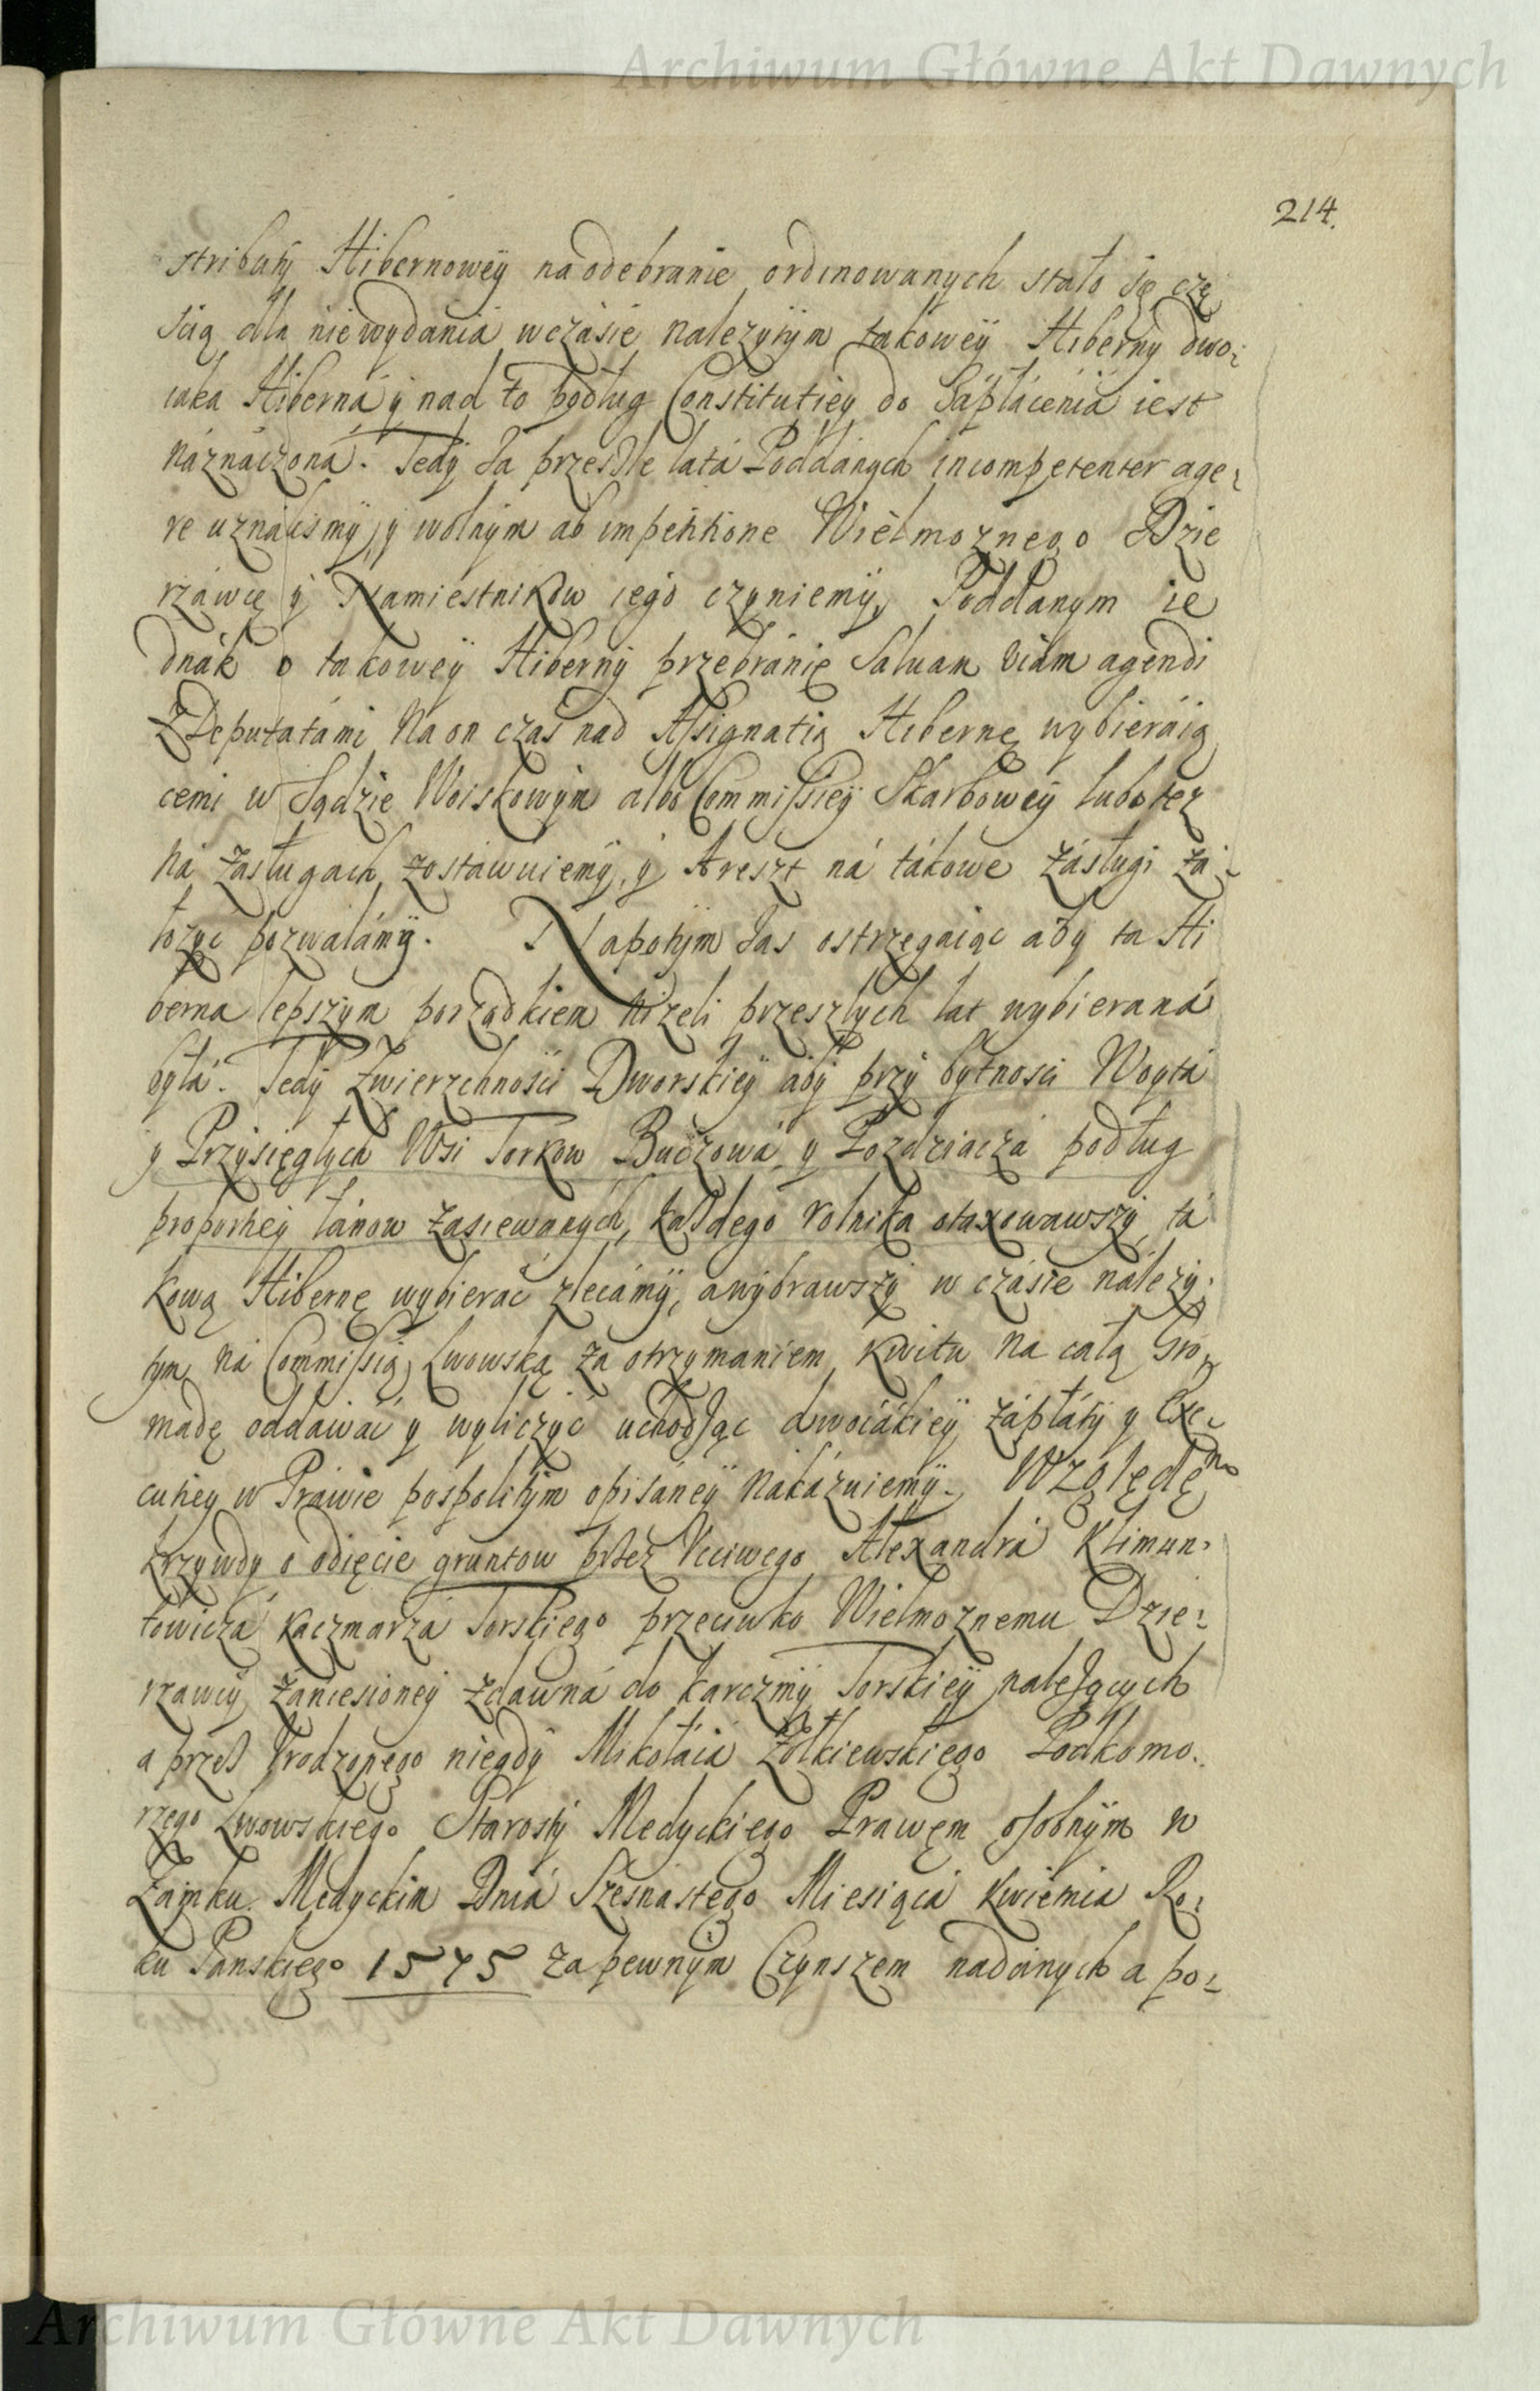 Archiwum Główne Akt Dawnych
214.
stributÿ Hibernowеÿ na odebranie ordinowanych stało się czę
scią dla niewydania wczásie nalezÿtÿm takoweÿ Hiberny dwo:
iaka Hiberná ÿ nad to podług Constitutiey do Záþłácenia iest
náznáczoná. Tedÿ Za przeszłe lata Poddánych incompetenter age:
re uználismÿ, ÿ wolnÿm ab impetitione Wielmoznego Dzie
rzáwcę ÿ Namiestnikow iego czyniemÿ, Poddanym ie
dnák o takoweÿ Hibernÿ przebránie saluam viam agendi
Z Deputatámi na on czas nad Assignatią Hibernę wybieráią
cemi w Sądzie Woiskowÿm albo Commissieÿ Skarboweÿ lubo tez
ná zasługach zostáwuiemÿ, ÿ Areszt ná tákowe zásługi zá:
łozyć pozwalámÿ. Napotÿm zas ostrzegáiąc aby ta Hi
berna lepszÿm porządkiem nizeli przeszłych lat wybieraná
byłá. Tedÿ Zwierzchności Dworskieÿ abÿ przÿ bytnosci Woytá
ÿ Przysięgłych Wsi Torkow Buczowá ÿ Pozdziaczá podług
proportiеÿ łánow zasiewanych, każdego rolnika otaxowawszÿ tá
kową Hibernę wybieráć zlecámÿ, a wÿbrawszÿ w czásie nálezÿ:
tym ná Commissią Lwowską za otrzymaniem kwitu na całą Gro,
madę oddáwáć ÿ wyliczÿć uchodząc dwoiákieÿ záþłátÿ ÿ Exe:
cutieÿ w Práwie pospolitÿm opisáneÿ nakázuiemÿ. Względem
krzywdÿ o odięcie gruntow przez Vcciwego Alexandrá Klimun:
towiczá kaczmarzá Torskiego przeciwko Wielmoznemu Dzie:
rzawcÿ zániesioneÿ zdawná do karczmÿ Torskieÿ należących
a przez Vrodzonego niegdÿ Mikołáiá Zołkiewskiego Podkomo:
rzego Lwowskiego Starostÿ Medyckiego Prawem osobnÿm w
Zamku Medyckim Dniá Szesnastego Miesiącá Kwietnia Ro:
ku Panskiego 1575 za pewnÿm Czynszem nadanych a po:
Archiwum Główne Akt Dawnych